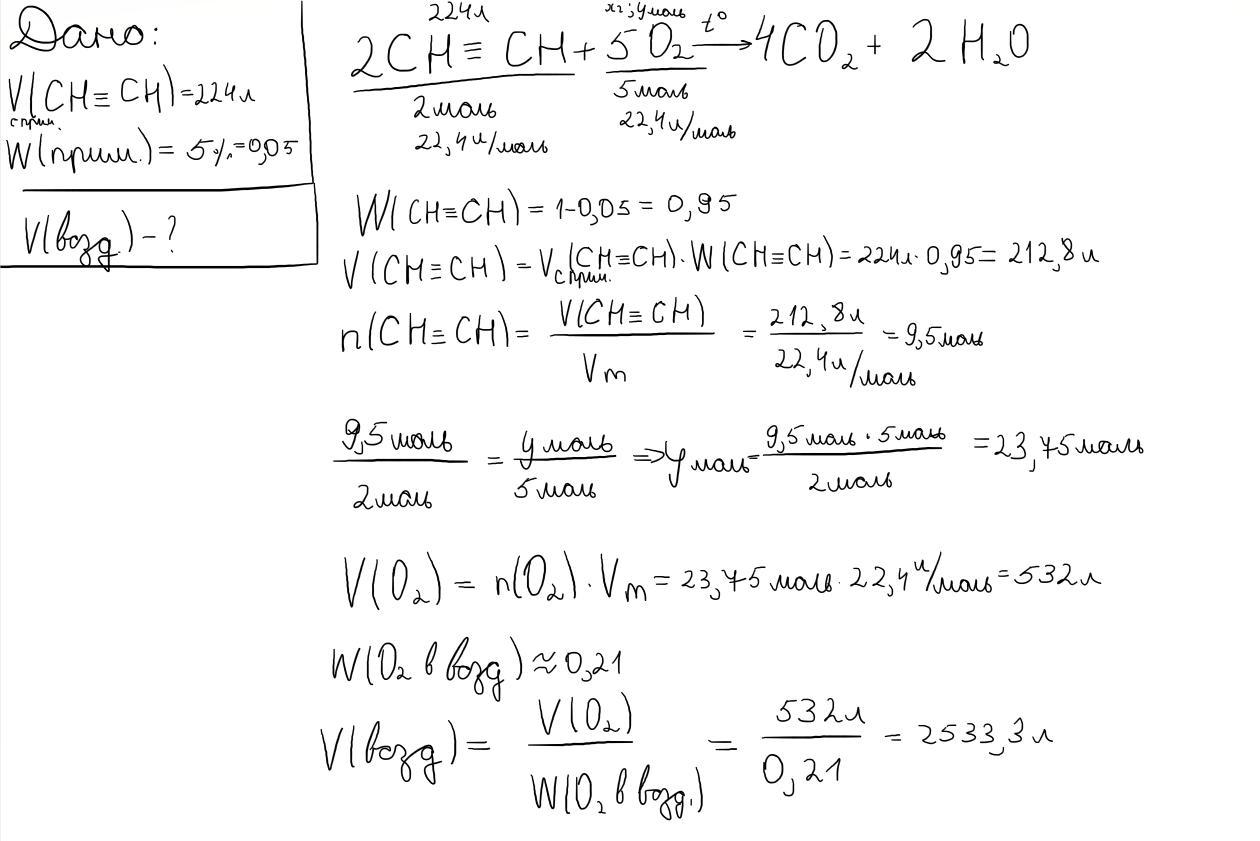 Дано:
V(CH≡CH)=224л
с прим.
W(прим.)= 5%=0,05
V(возд.)-?
224л
x г; y моль
2CH≡CH+5O₂ t° → 4CO₂+ 2H₂O
2моль
5моль
22,4л/моль
22,4л/моль
W(CH≡CH)=1-0,05=0,95
V(CH≡CH)=V с прим.(CH≡CH)·W(CH≡CH)=224л·0,95=212,8л
n(CH≡CH)= V(CH≡CH)/Vm = 212,8л/22,4л/моль =9,5моль
9,5моль/2моль = y моль/5моль => y моль= 9,5моль·5моль/2моль =23,75моль
V(O₂)=n(O₂)·Vm=23,75моль·22,4л/моль=532л
W(O₂ в возд)≈0,21
V(возд)= V(O₂)/W(O₂ в возд.) = 532л/0,21 = 2533,3л